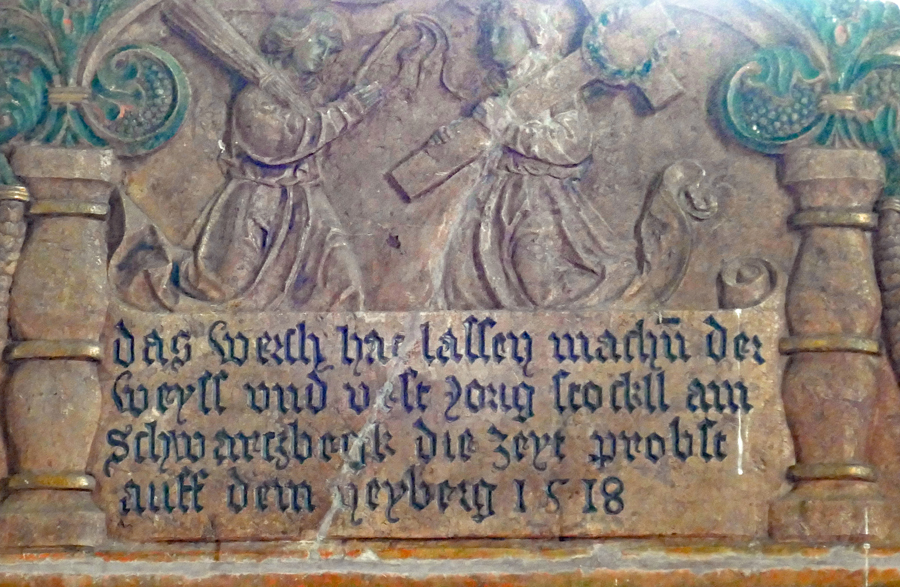 das werch hat lassen machn̄ der
weyss vnd vest yorig stockll am
Schwartzbergk die zeyt probst
auff dem neyberg 1518